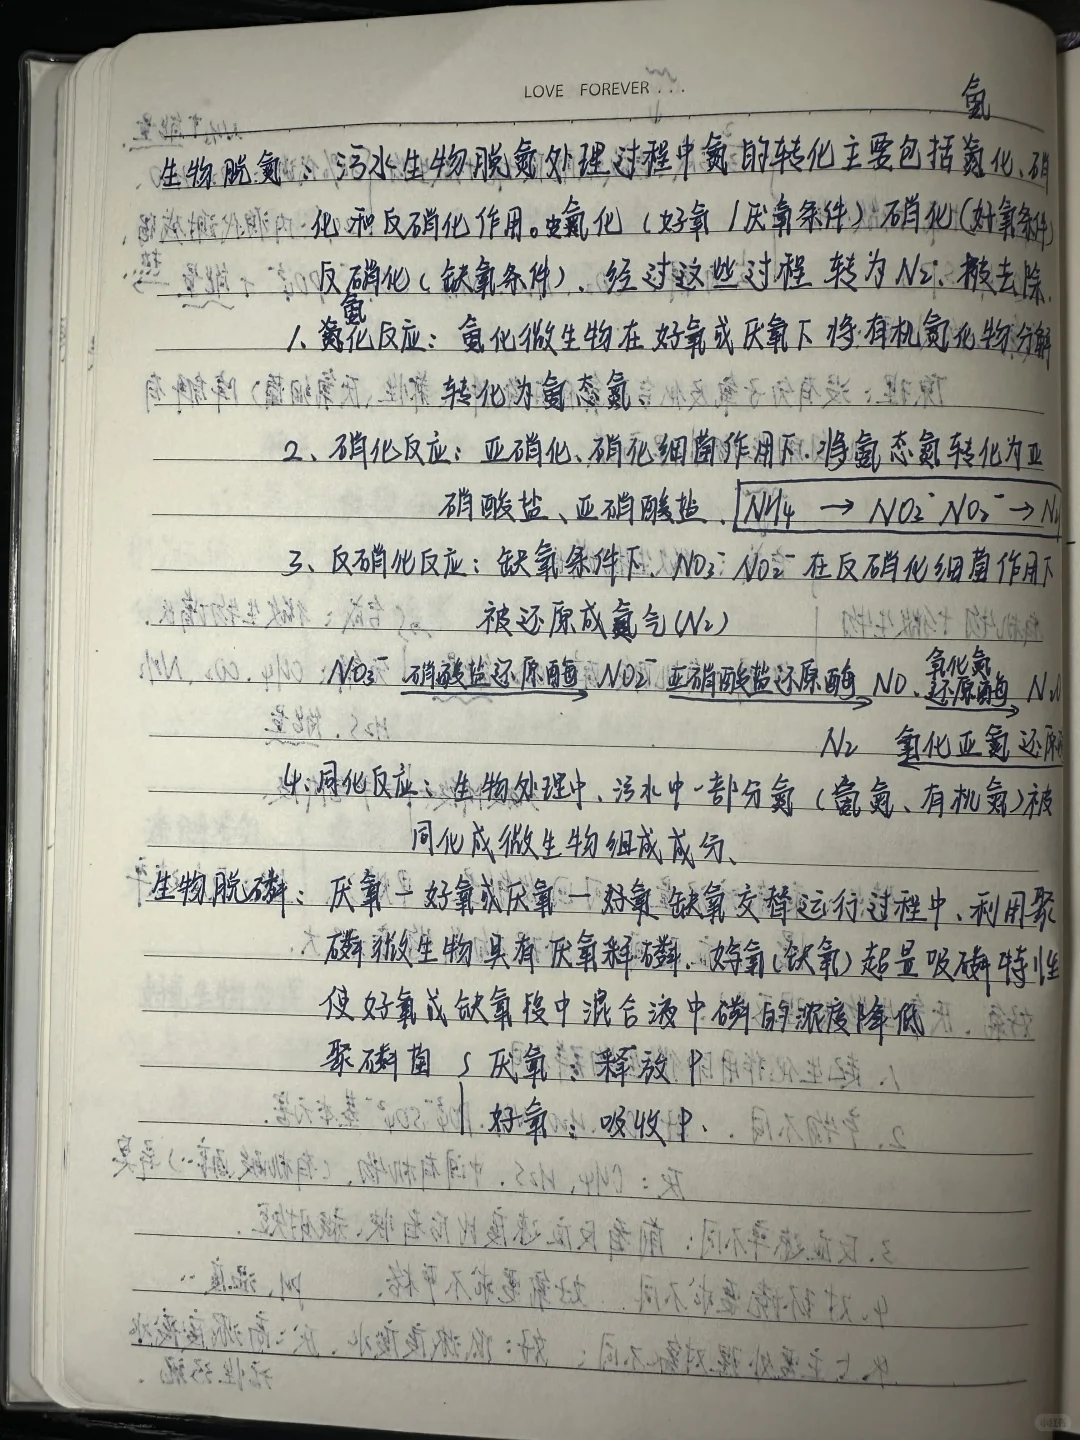 LOVE FOREVER...
氨
生物脱氮：污水生物脱氮处理过程中氮的转化主要包括氨化、硝
化和反硝化作用。氨化（好氧/厌氧条件）硝化（好氧条件）
反硝化（缺氧条件）、经过这些过程 转为N2、被去除.
氨
1、氮化反应：氨化微生物在好氧或厌氧下将有机氮化物分解
转化为氨态氮
2、硝化反应：亚硝化、硝化细菌作用下、将氨态氮转化为亚
硝酸盐、亚硝酸盐、NH4 → NO2⁻ NO2⁻ → N
3、反硝化反应：缺氧条件下、NO3⁻ NO2⁻ 在反硝化细菌作用下
被还原成氮气(N2)
NO3⁻ 硝酸盐还原酶 NO2⁻ 亚硝酸盐还原酶 NO 氧化氮还原酶 N2O
N2 氧化亚氮还原
4、同化反应：生物处理中、污水中一部分氮（氨氮、有机氮）被
同化成微生物组成成分、
生物脱磷：厌氧－好氧或厌氧－好氧 缺氧交替运行过程中、利用聚
磷微生物具有厌氧释磷、好氧（缺氧）超量吸磷特性
使好氧或缺氧段中混合液中磷的浓度降低
聚磷菌 厌氧：释放P
好氧：吸收P.
小红书